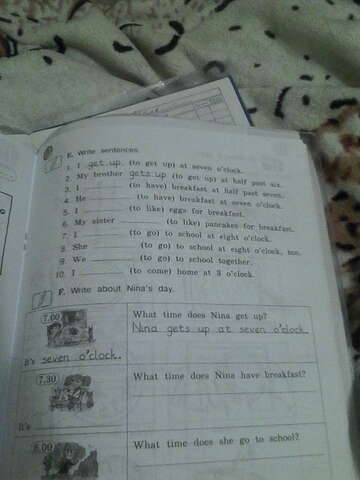 E. Write sentences.
1. I get up (to get up) at seven o'clock.
2. My brother gets up (to get up) at half past six.
3. I ______ (to have) breakfast at half past seven.
4. He ______ (to have) breakfast at seven o'clock.
5. I ______ (to like) eggs for breakfast.
6. My sister ______ (to like) pancakes for breakfast.
7. I ______ (to go) to school at eight o'clock.
8. She ______ (to go) to school at eight o'clock, too.
9. We ______ (to go) to school together.
10. I ______ (to come) home at 3 o'clock.
F. Write about Nina's day.
7.00
What time does Nina get up?
Nina gets up at seven o'clock.
It's seven o'clock.
7.30
What time does Nina have breakfast?
It's
8.00
What time does she go to school?